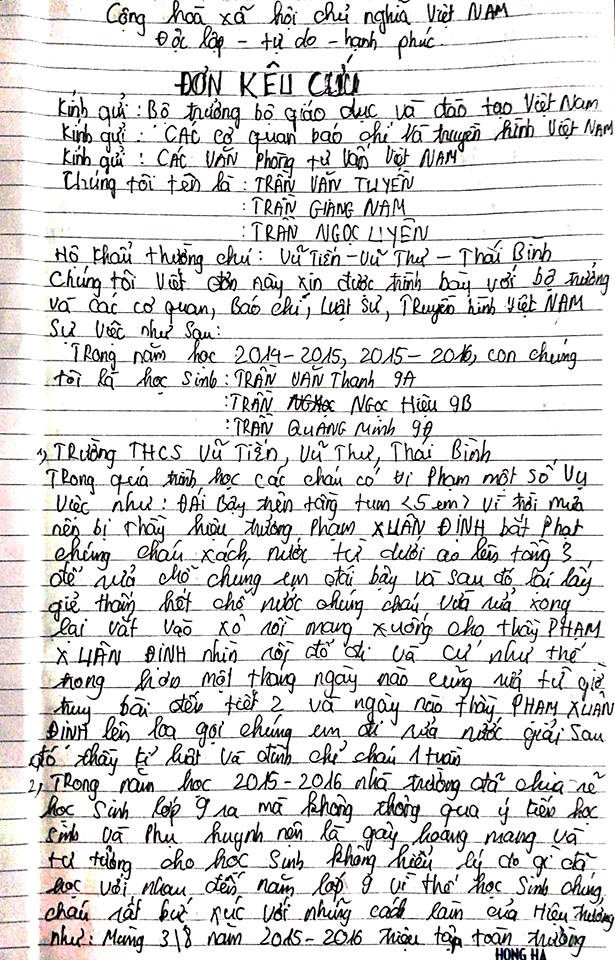 Cộng hoà xã hội chủ nghĩa Việt NAM
Độc lập - tự do - hạnh phúc.
ĐƠN KÊU CỨU
Kính gửi : Bộ trưởng bộ giáo dục và đào tạo Việt Nam
Kính gửi : CÁC cơ quan báo chí và truyền hình Việt NAM
Kính gửi : CÁC VĂN Phòng tư vấn Việt NAM
Chúng tôi tên là : TRẦN VĂN TUYẾN
: TRẦN GIANG NAM
: TRẦN NGỌC UYÊN
Hộ khẩu thường chú : Vũ Tiến - Vũ Thư - Thái Bình
Chúng tôi Viết đơn này xin được trình bày với bộ trưởng
và các cơ quan, Báo chí, Luật sư, Truyền hình Việt NAM
Sự việc như Sau :
Trong năm học 2014-2015, 2015-2016, con chúng
tôi là học Sinh : TRẦN VĂN Thanh 9A
: TRẦN NGỌC Hiệu 9B
: TRẦN QUANG Minh 9A
1) TRường THCS Vũ Tiến, Vũ Thư, Thái Bình
TRong quá trình học các cháu có vi Phạm một Số Vụ
Việc như : ĐÁI Bậy trên tầng tum <5 em> vì trời mưa
nên bị Thầy hiệu trưởng Phạm XUÂN ĐỈNH bắt Phạt
chúng cháu xách nước từ dưới ao lên tầng 3
để rửa chỗ chúng em đái bậy và sau đó lại lấy
giẻ thấm hết chỗ nước chúng cháu vừa rửa xong
lại vắt vào xô rồi mang xuống cho thầy PHẠM
XUÂN ĐỈNH nhìn rồi đổ đi và cứ như thế
trong hơn một tháng ngày nào cũng rửa từ giờ
truy bài đến tiết 2 và ngày nào thầy PHẠM XUÂN
ĐỈNH lên loa gọi chúng em đi rửa nước giải Sau
đó thầy kỉ luật và đình chỉ cháu 1 tuần
2) TRong năm học 2015-2016 nhà trường đã chia rẽ
học Sinh lớp 9 ra mà không thông qua ý kiến học
sinh và Phụ huynh nên là gây hoang mang và
tư tưởng cho học Sinh không hiểu lý do gì đã
học với nhau đến năm lớp 9 vì thế học Sinh chúng
cháu rất bức xúc với những cách làm của Hiệu trưởng
như : Mùng 3\8 năm 2015-2016 triệu tập toàn trường
HONG HA